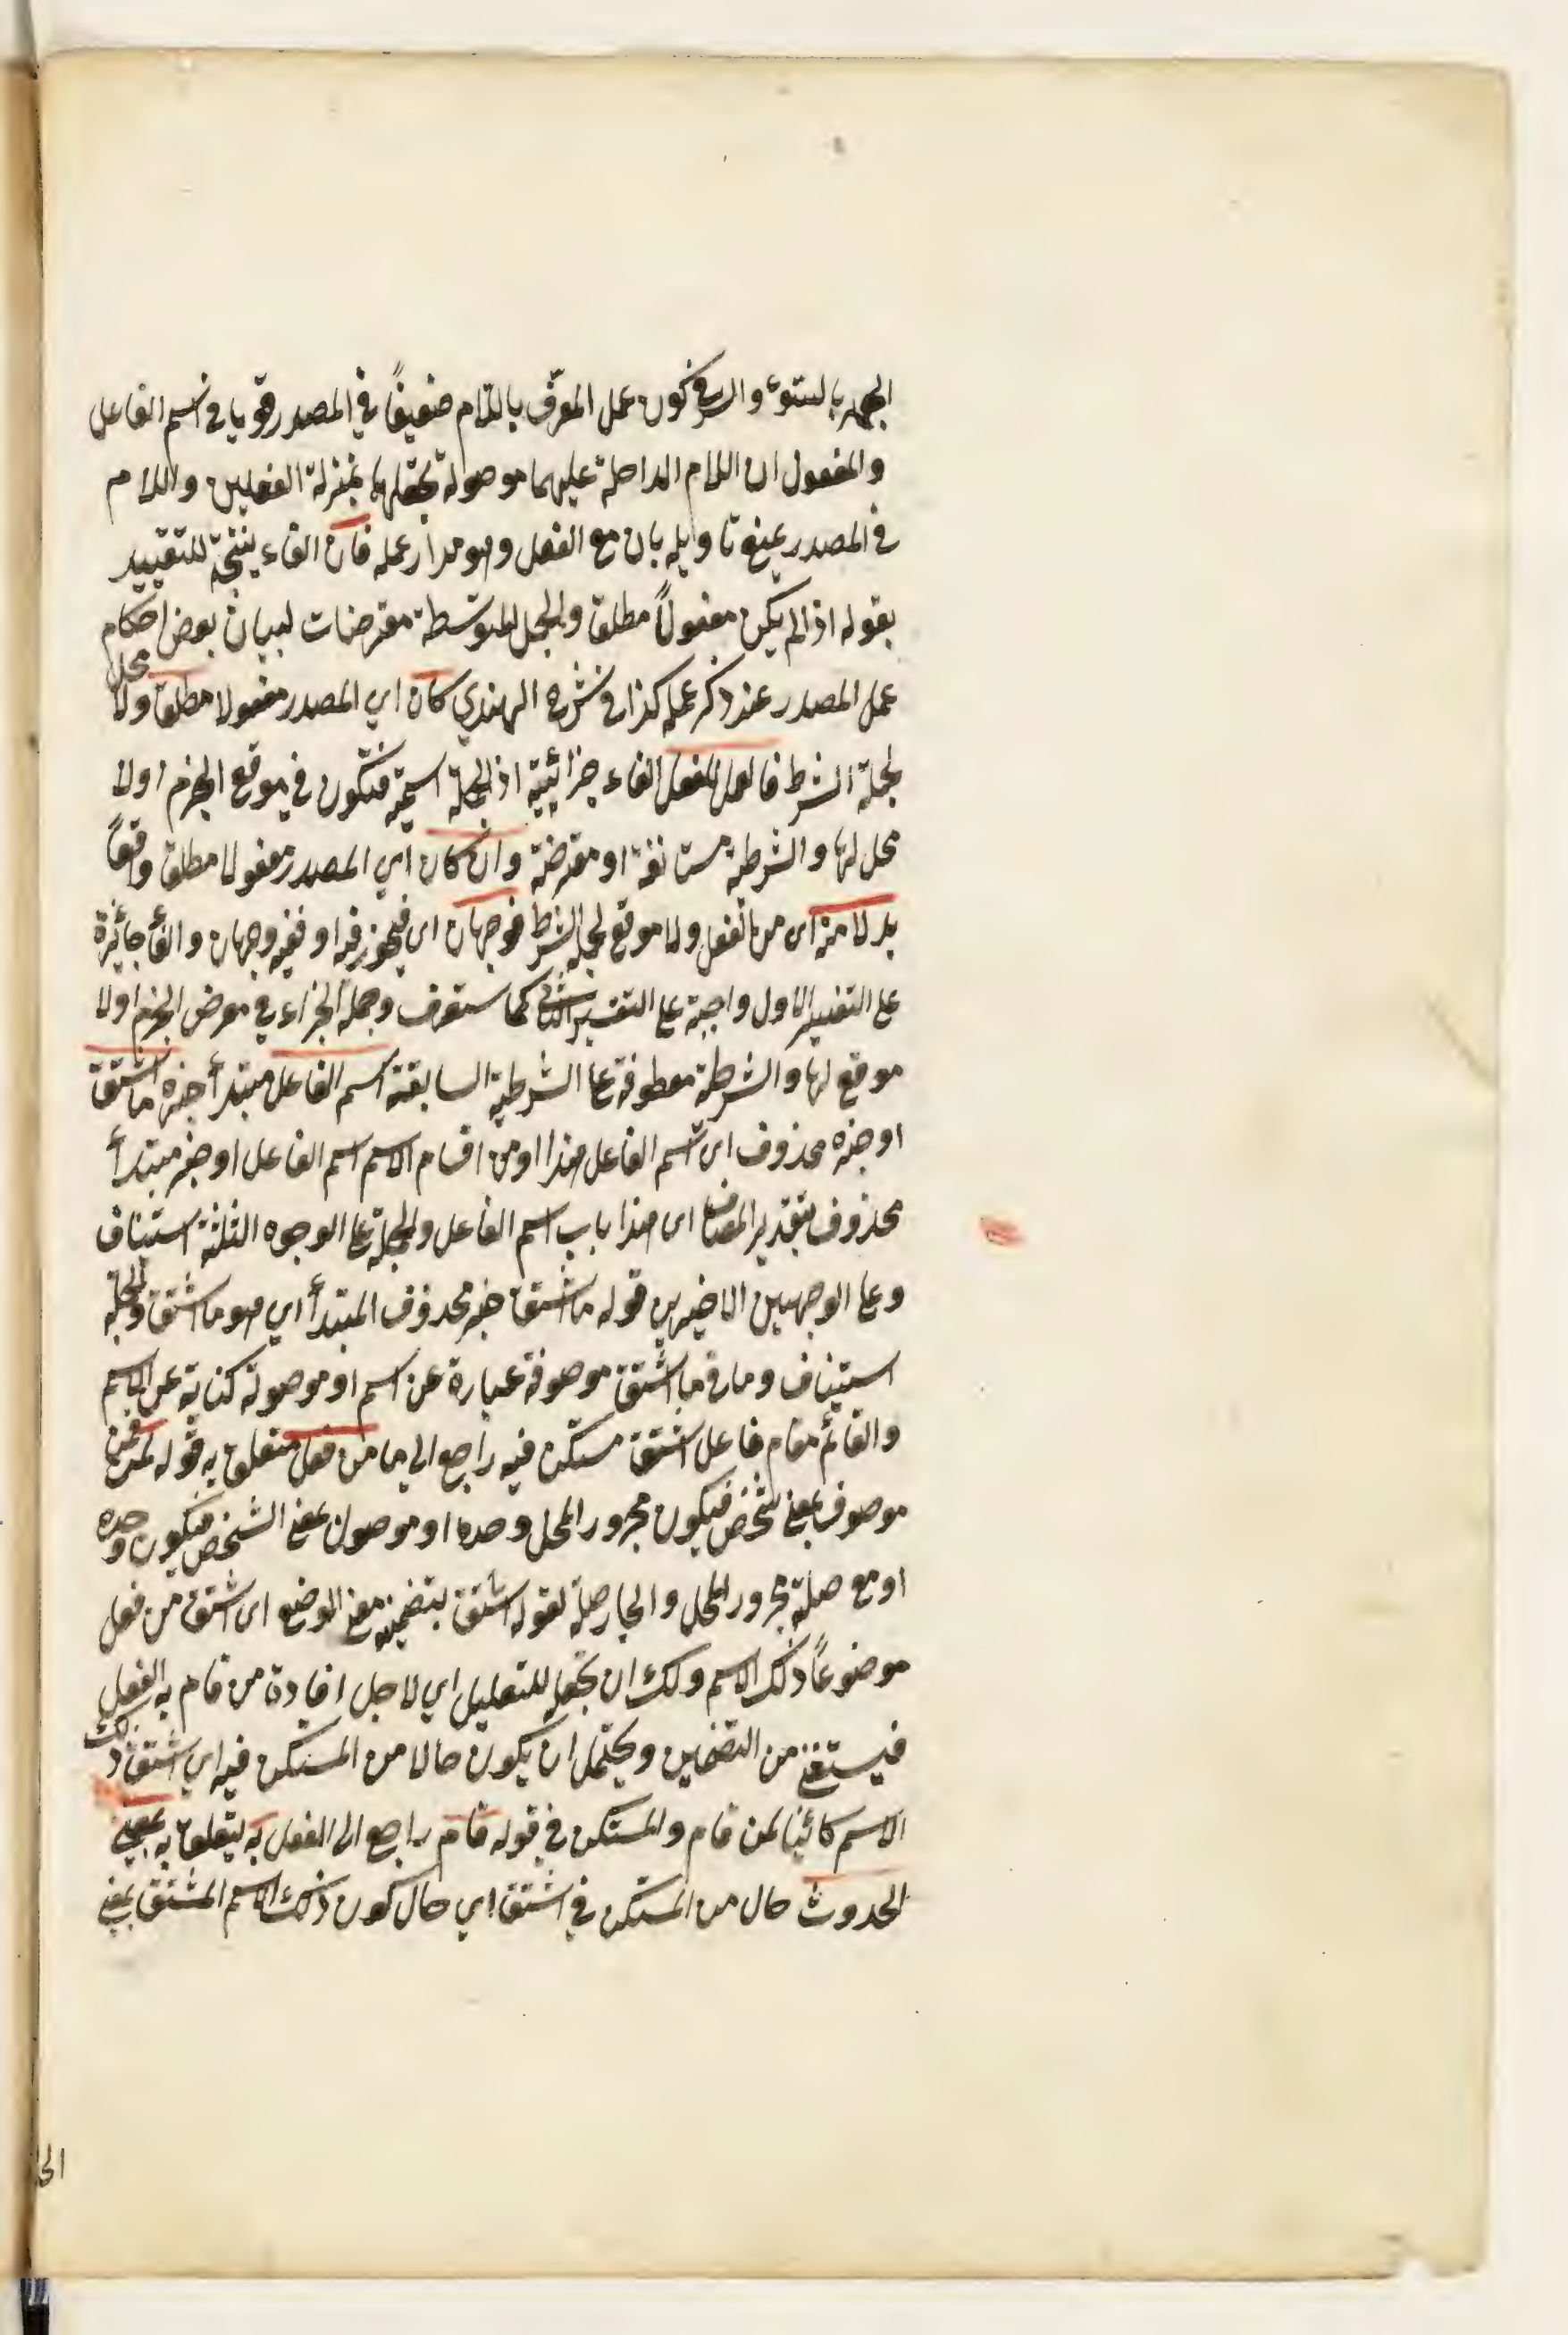 الجهر بالسوء والسر في كون عمل المعرّف باللام ضعيفًا في المصدر قويا في اسم الفاعل
والمفعول ان اللام الداخلة عليهما موصولة تجعلهما بمنزلة الفعلين واللام
في المصدر يمنع تاويله بان مع الفعل وهو مدار عمله فان الفاء نتيجة للتقييد
بقوله اذا لم يكن مفعولًا مطلقا والجمل المتوسطة معترضات لبيان بعض احكام
عمل المصدر عند ذكر عمله كذا في شرح الهندي كان اي المصدر مفعولا مطلقا ولا محل
لجملة الشرط فالعمل للفعل الفاء جزائية اذ الجملة اسمية فتكون في موقع الجزم اولا
محل لها والشرطية مستانفة او معترضة وان كان اي المصدر مفعولا مطلقا واقعًا
بدلا منه اى من الفعل ولا موقع لجملة الشرط فوجهان اى فيجوز فيه او ففيه وجهان والفاء جائزة
على التفسير الاول واجبة على التفسير الثاني كما ستعرف وجملة الجزاء في معرض الجزم اولا
موقع لها والشرطية معطوفة على الشرطية السابقة اسم الفاعل مبتدأ خبره ما اشتق
او خبره محذوف اى اسم الفاعل هذا او من اقسام الاسم اسم الفاعل او خبر مبتدأ
محذوف بتقدير المضاف اى هذا باب اسم الفاعل والجملة على الوجوه الثلثة استيناف
وعلى الوجهين الاخيرين قوله ما اشتق خبر محذوف المبتدأ اي هو ما اشتق والجملة
استيناف وما في ما اشتق موصوفة عبارة عن اسم او موصولة كناية عن الاسم
والقائم مقام فاعل اشتق مستكن فيه راجع الى ما من فعل متعلق به قوله لمن فمن
موصوف بمعنى شخص فيكون مجرور المحل وحده او موصول بمعنى الشخص فيكون وحده
او مع صلته مجرور المحل والجار صلة لقوله اشتق بتضمينه معنى الوضع اى اشتق من فعل
موضوعًا ذلك الاسم ولك ان تجعله للتعليل اي لاجل افادة من قام به الفعل
فيستغنى من التضمين ويحتمل ان يكون حالا من المستكن فيه اي اشتق ذلك
الاسم كائنا لمن قام والمستكن في قوله قام راجع الى الفعل به يتعلق به بمعنى
الحدوث حال من المستكن في اشتق اي حال كون ذلك الاسم المشتق بمعنى